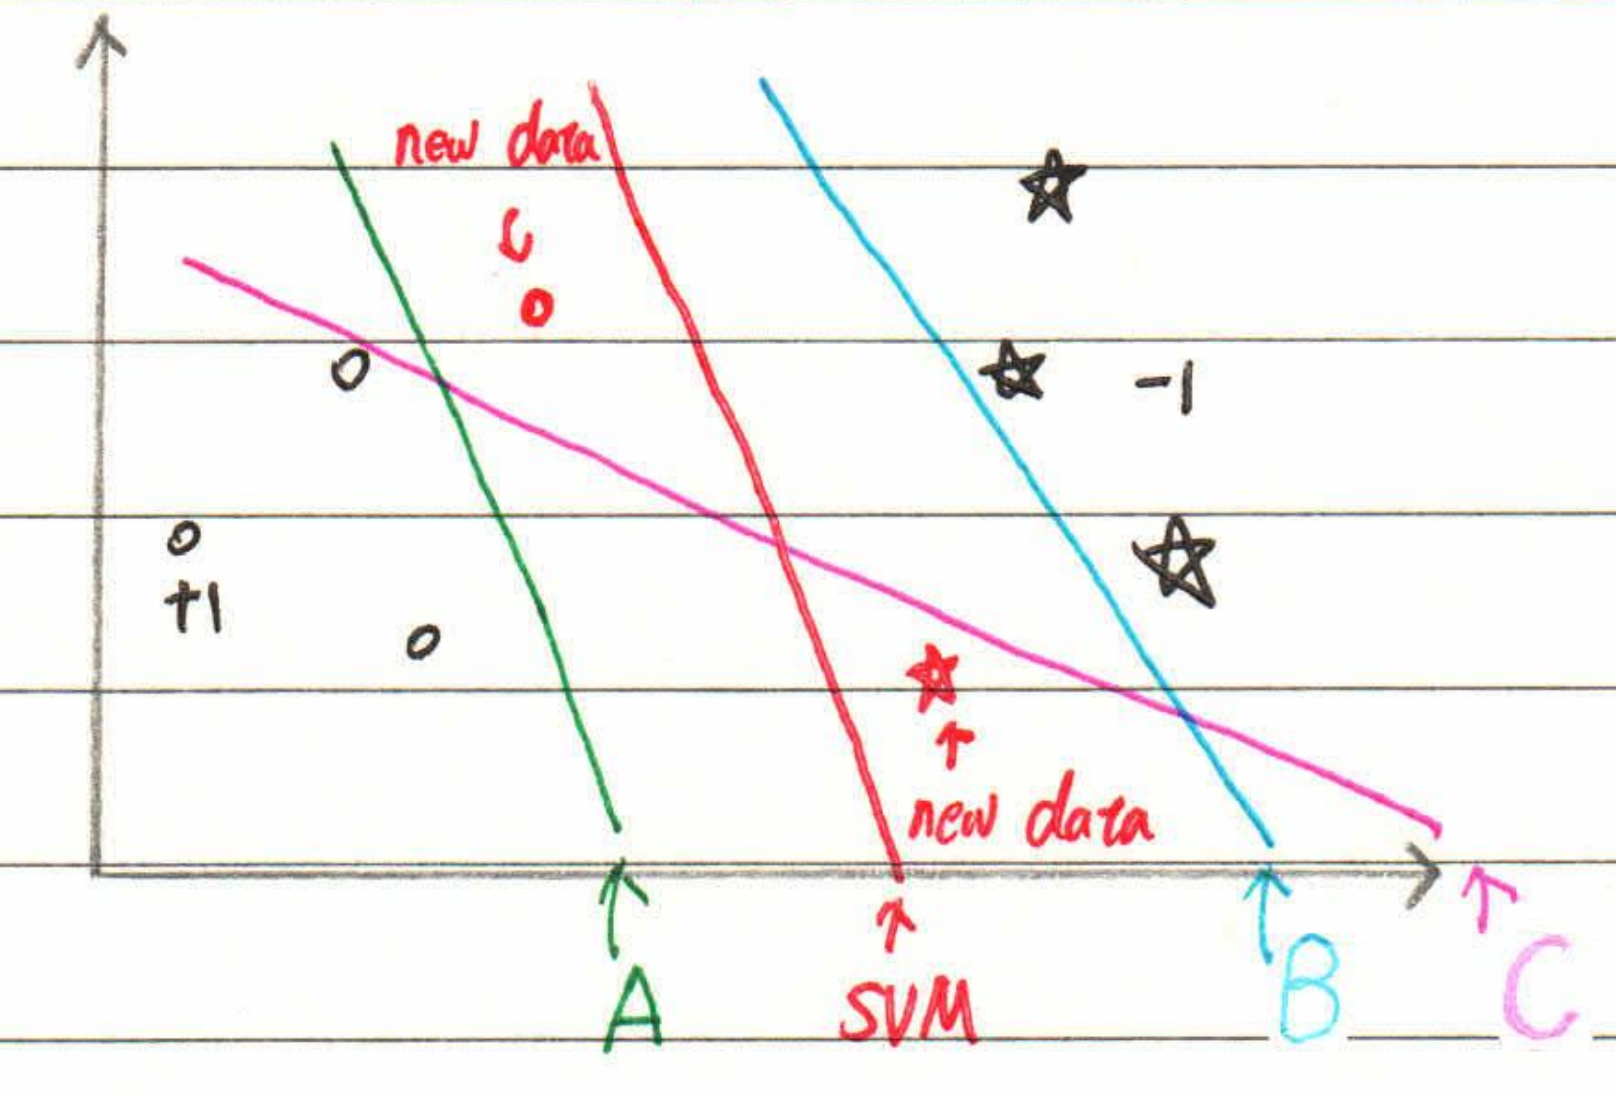 new data
-1
+1
new data
A
SVM
B
C